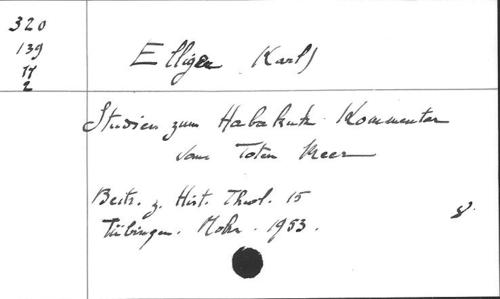 320
139
17
2
Elliger Karl)
Studien zum Habakuk-Kommentar
vom Toten Meer
Beitr. z. Hist. Theol. 15
Tübingen. Mohr. 1953.
8°